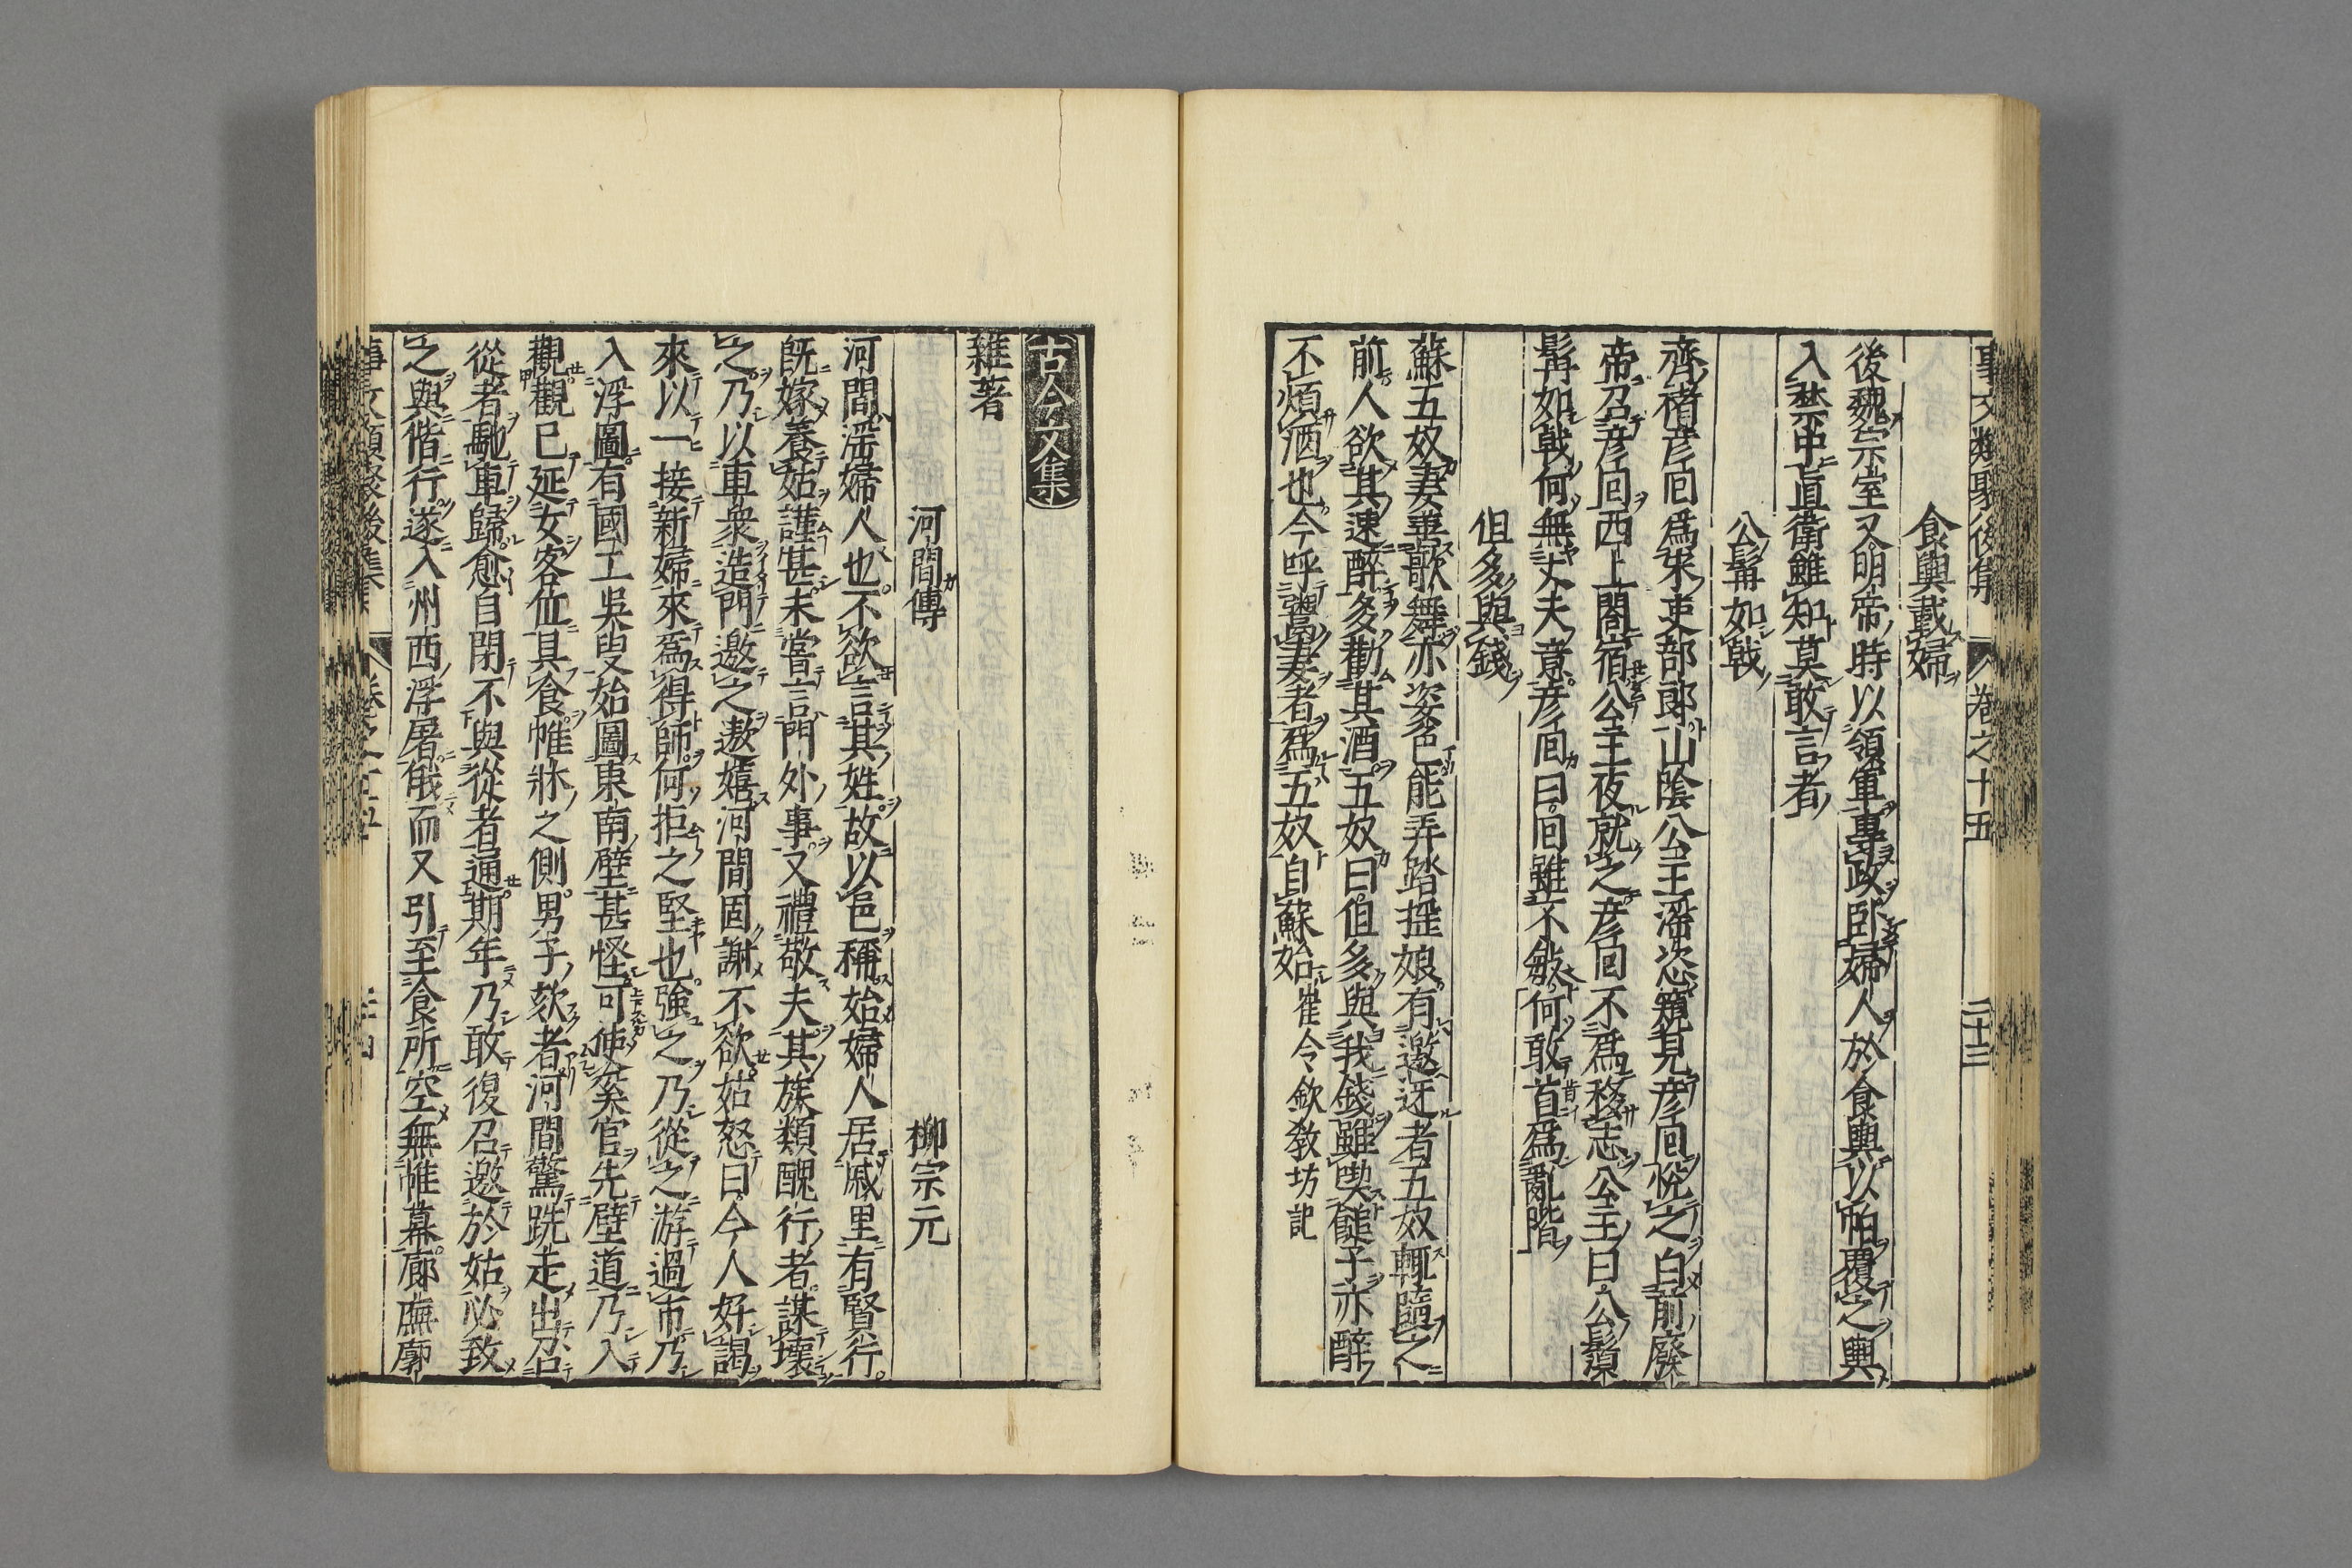 事文類聚後集 卷之十五 二十三
食輿載婦
後魏宗室又明帝時以領軍專政卧婦人於食輿以帕覆之輿
入禁中直衛雖知莫敢言者
公髯如戟
齊褚彦回爲宋吏部郎山陰公主淫恣窺見彦回悅之白前廢
帝召彦回西上閣宿公主夜就之彦回不爲移志公主曰公鬚
髯如戟何無丈夫意彦回曰回雖不敏何敢首爲亂階
但多與錢
蘇五奴妻善歌舞亦姿色能弄踏揺娘有邀迓者五奴輒隨之
前人欲其速醉多勸其酒五奴曰但多與我錢雖喫䭔子亦醉
不煩酒也今呼鬻妻者爲五奴自蘇始崔令欽敎坊記
古今文集
雜著
河間傳 柳宗元
河間滛婦人也不欲言其姓故以邑稱始婦人居戚里有賢行
旣嫁養姑謹甚未嘗言門外事又禮敬夫其族類醜行者謀壞
之乃以車衆造門邀之遨嬉河間固謝不欲姑怒曰今人好謁
來以一接新婦來爲得師何拒之堅也強之乃從之游過市乃
入浮圖有國工吳叟始圖東南壁甚怪可使奚官先壁道乃入
觀觀已延女客位具食帷牀之側男子欬者河間驚跣走出召
從者馳車歸愈自閉不與從者通期年乃敢復召邀於姑必致
之與偕行遂入州西浮屠俄而又引至食所空無帷幕廊廡廓
事文類聚後集 卷之十五 二十四